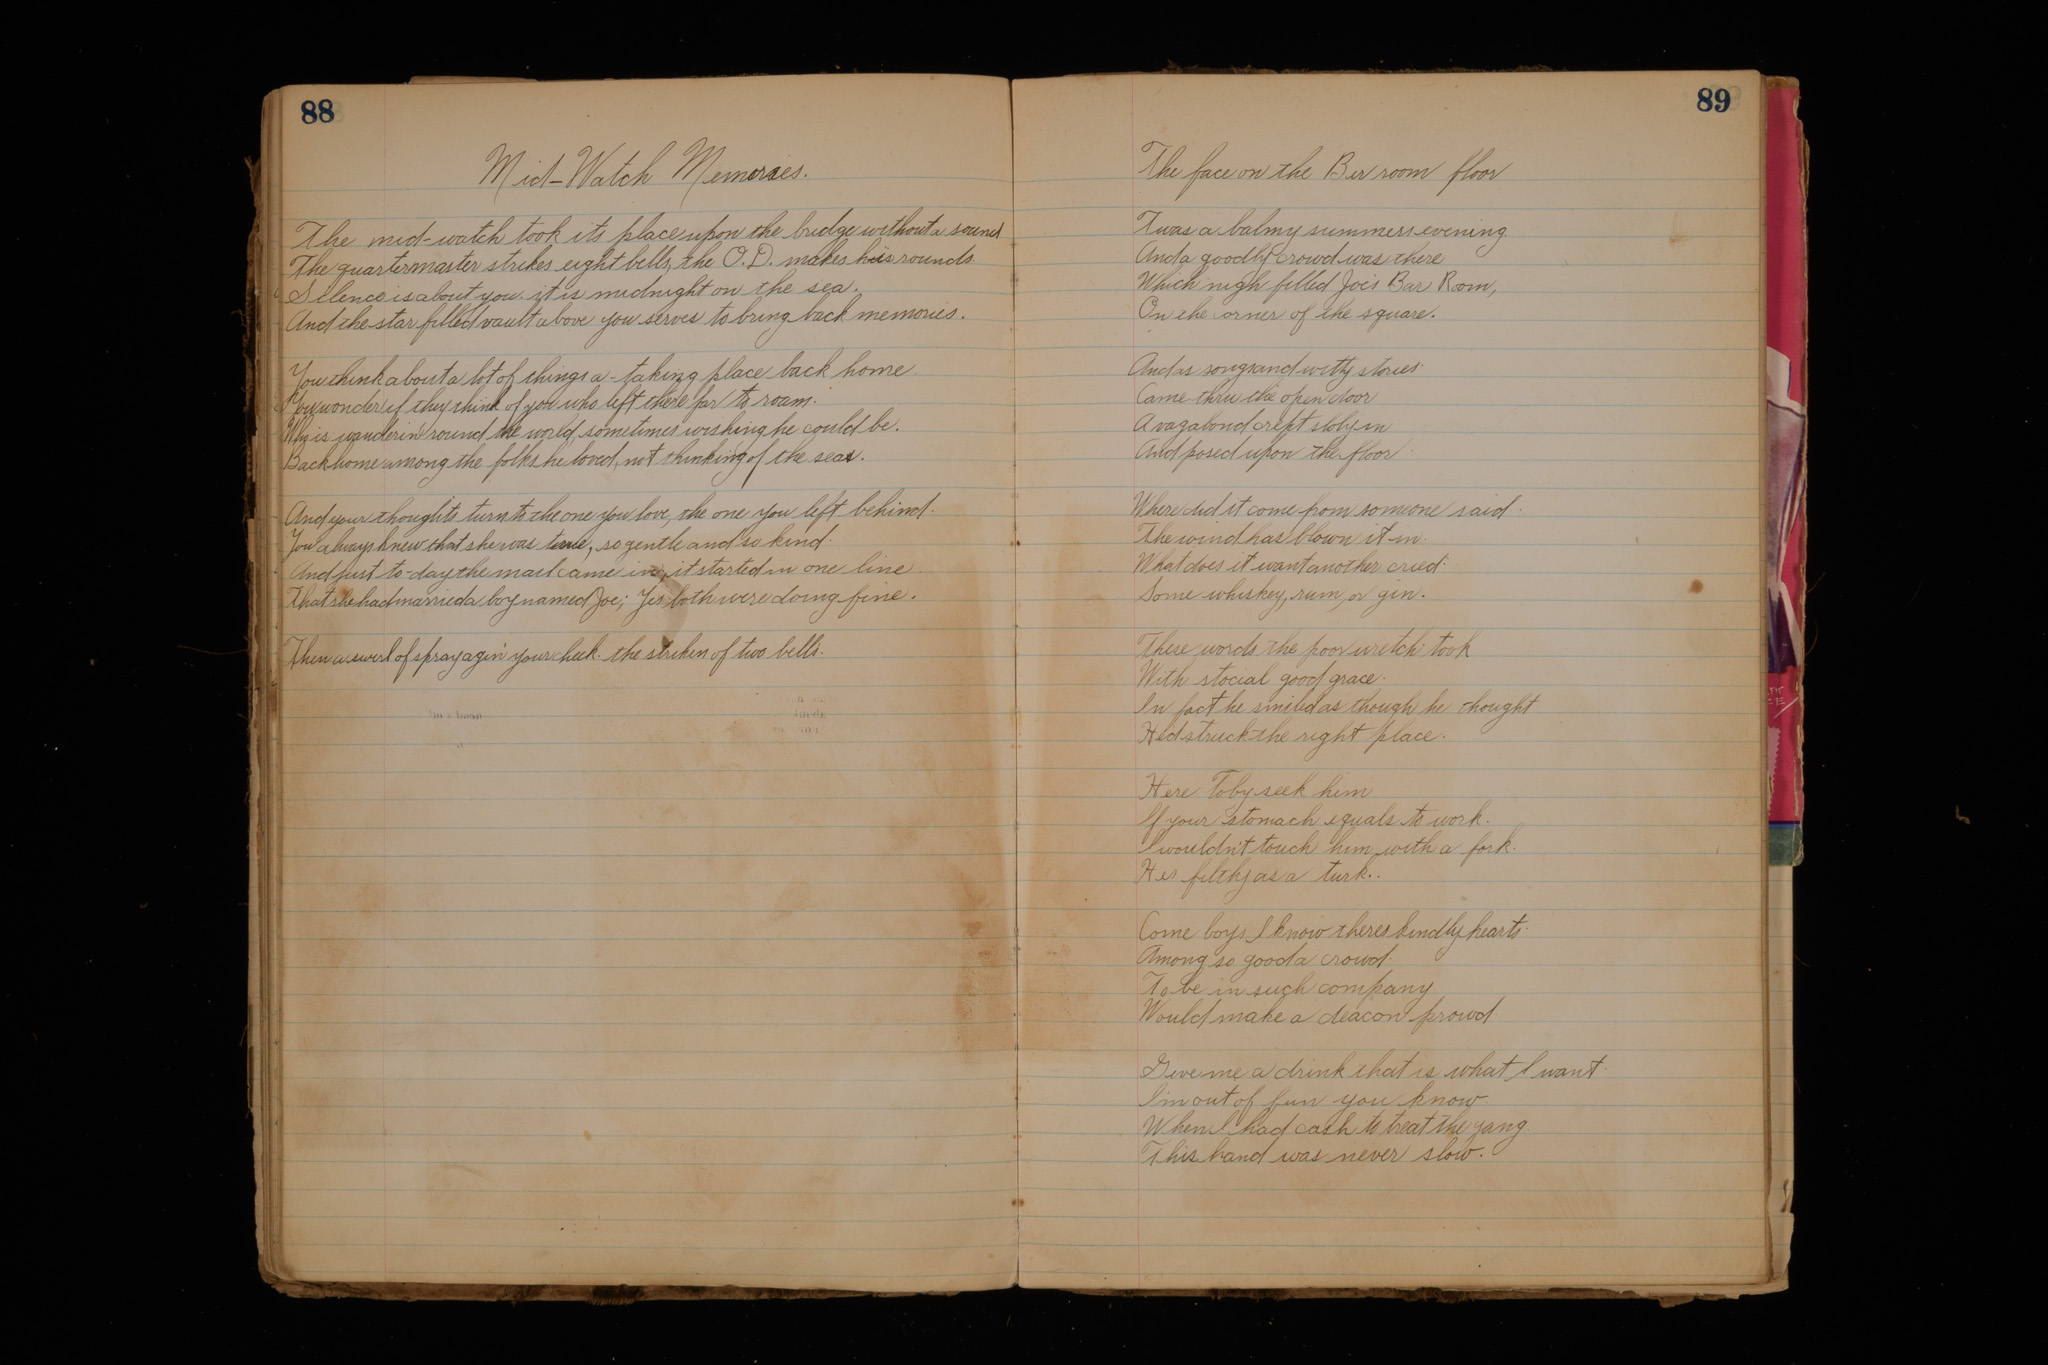 88
Mid-Watch Memories.
The mid-watch took its place upon the bridge without a sound
The quartermaster strikes eight bells, the O.D. makes his rounds.
Silence is about you. it is midnight on the sea.
And the star filled vault above you serves to bring back memories.
You think about a lot of things a-taking place back home
You wonder if they think of you who left there far to roam.
Who is wanderin' round the world, sometimes wishing he could be.
Back home among the folks he loved, not thinking of the sea.
And your thoughts turn to the one you love, the one you left behind.
You always knew that she was true, so gentle and so kind.
And just to-day the mail came in, it started in one line
That she had married a boy named Joe; Yes, both were doing fine.
Then a swirl of spray agin' your cheek. the striken of two bells.
89
The face on the Bar room floor
Twas a balmy summers evening
And a goodly crowd was there
Which nigh filled Joe's Bar Room,
On the corner of the square.
And as songs and witty stories
Came thru the open door
A vagabond crept sloly in
And posed upon the floor
Where did it come from someone said
The wind has blown it in
What does it want another cried
Some whiskey, rum, or gin.
These words the poor wretch took
With stocial good grace.
In fact he smiled as though he thought
Hed struck the right place.
Here Toby seek him
If your stomach equals to work.
I wouldn't touch him with a fork.
Hes filthy as a turk..
Come boys I know theres kindly hearts
Among so good a crowd.
To be in such company
Would make a deacon prowd
Give me a drink that is what I want
I'm out of fun you know
When I had cash to treat the gang
This hand was never slow.